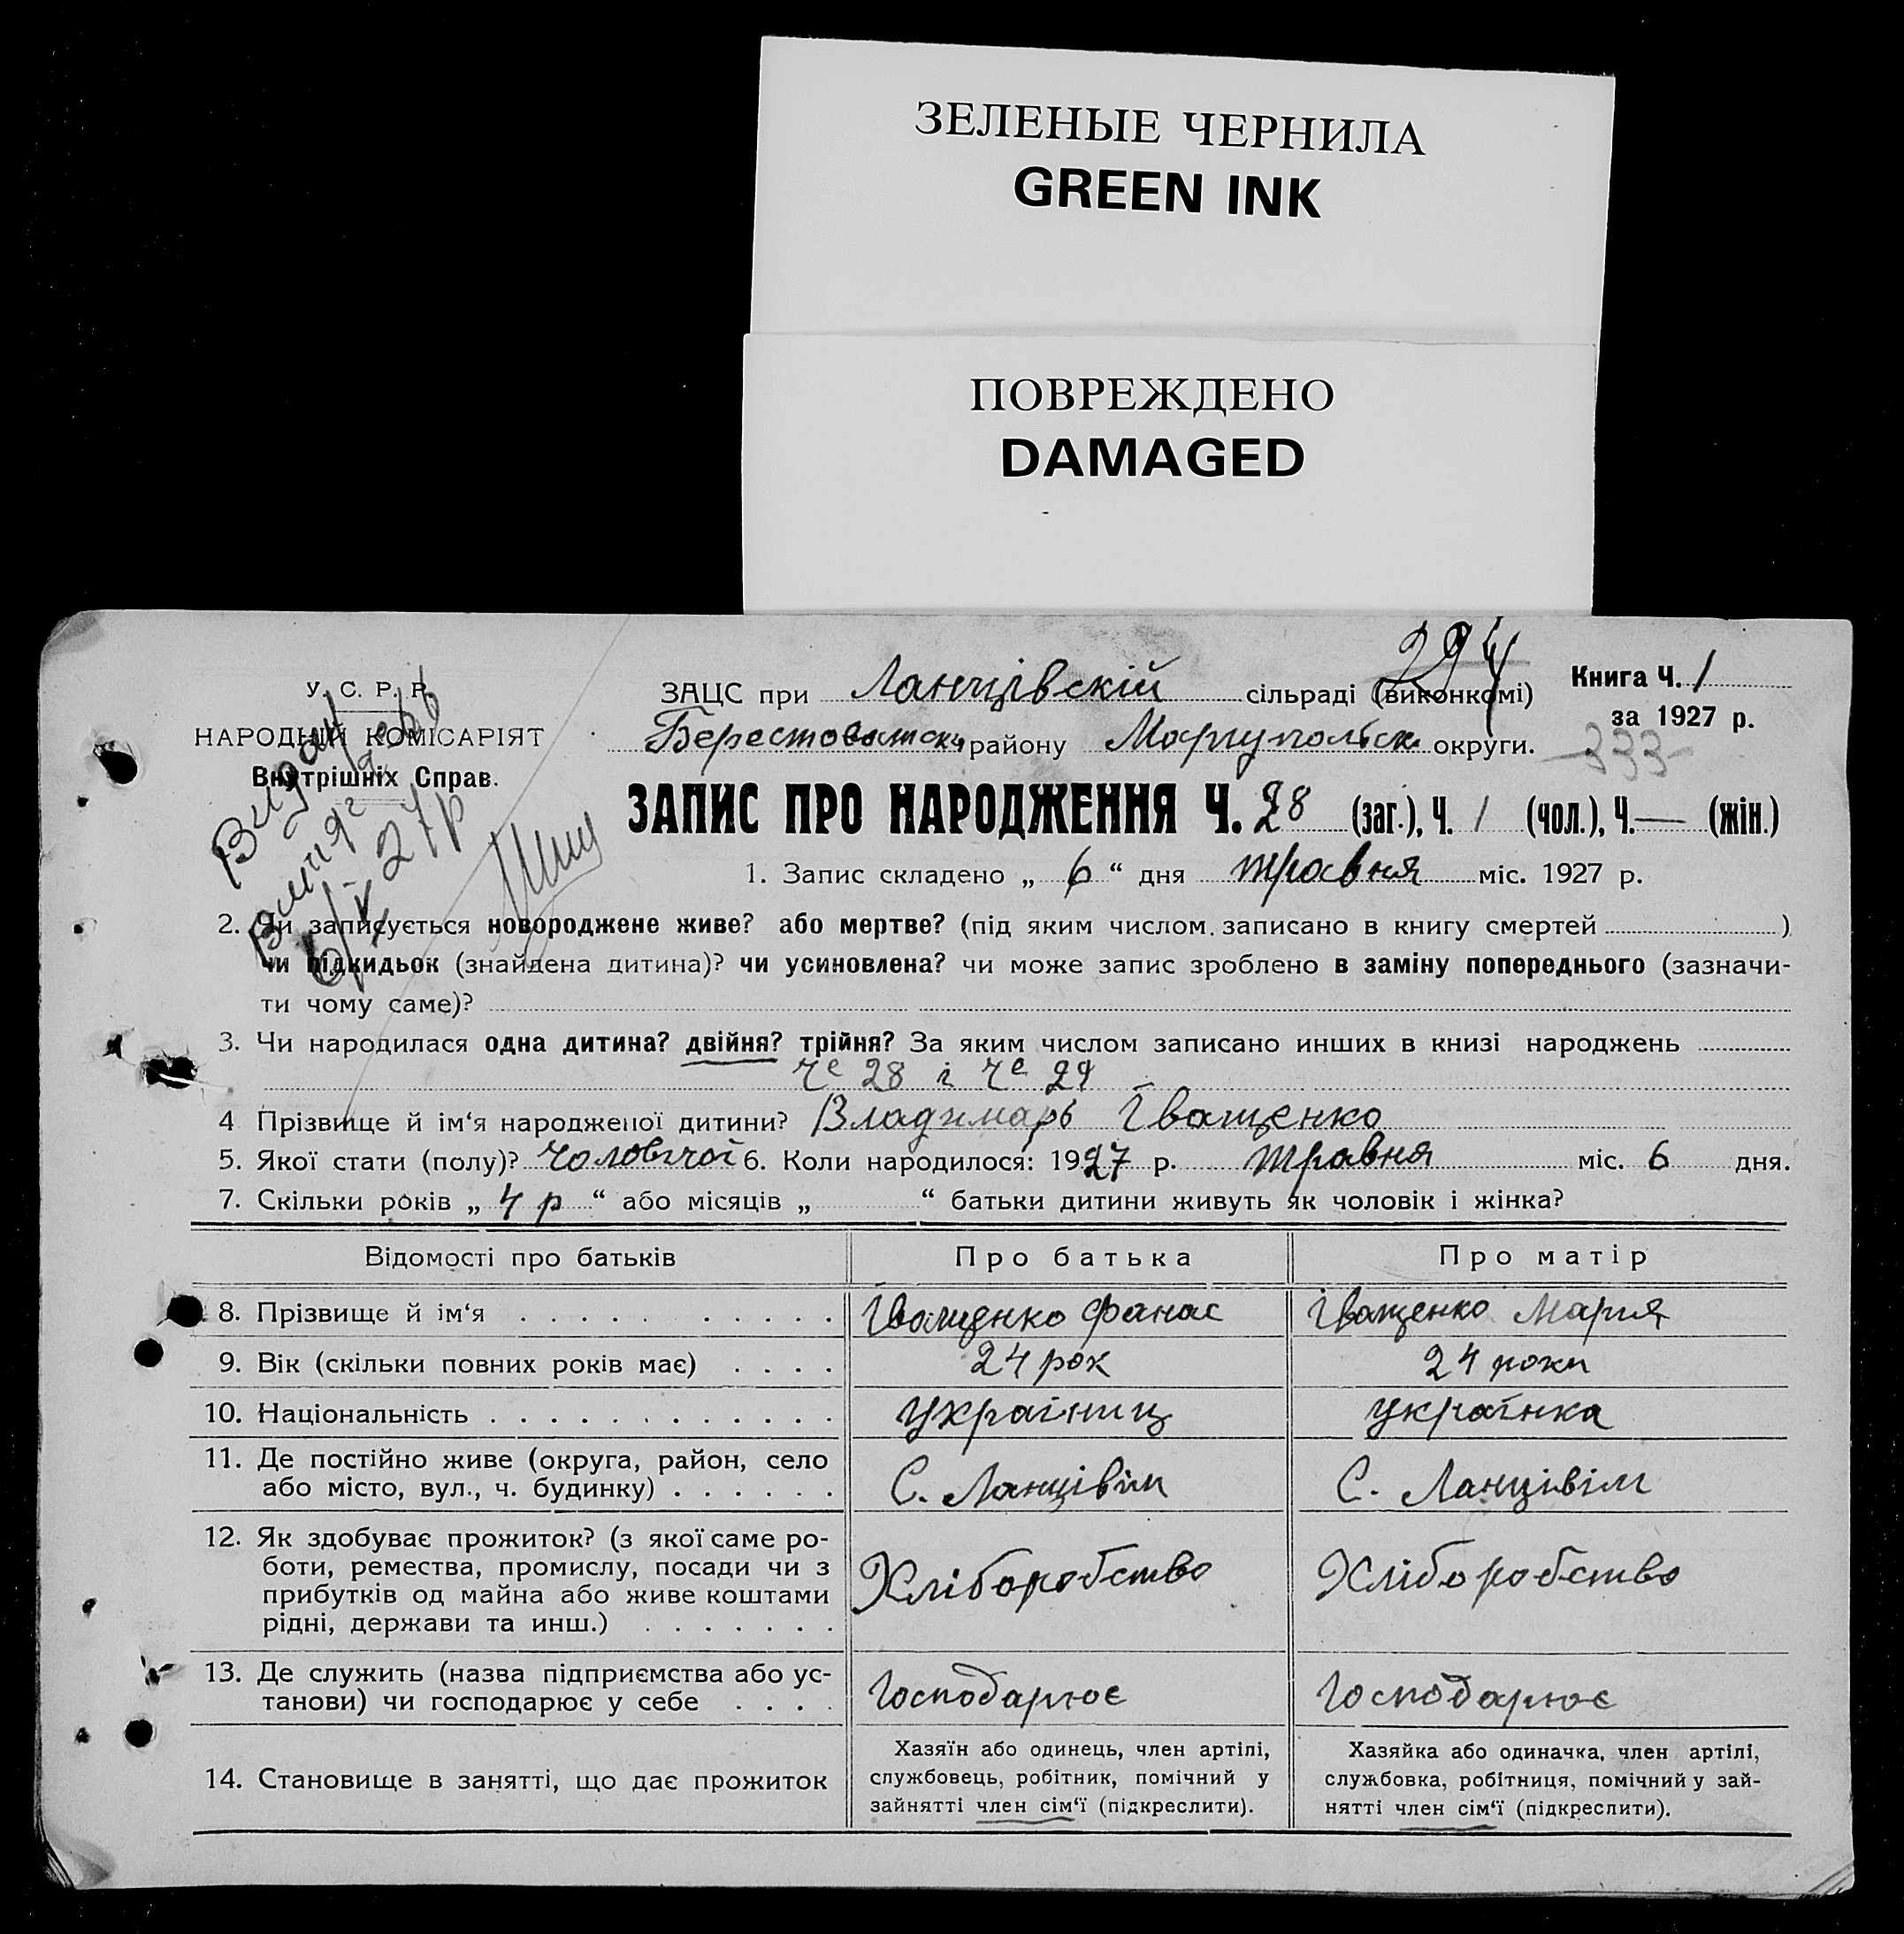 ЗЕЛЕНЫЕ ЧЕРНИЛА
GREEN INK
ПОВРЕЖДЕНО
DAMAGED
294
У. С. Р. Р.
НАРОДНІЙ КОМІСАРІЯТ
Внутрішніх Справ.
ЗАЦС при Ланцівскій сільраді (виконкомі)
Книга Ч. 1
за 1927 р.
Берестоватск района Мариупольск округи.
333
ЗАПИС ПРО НАРОДЖЕННЯ Ч. 28 (заг.), Ч. 1 (чол.), Ч. — (жін.)
Видан
27р
1. Запис складено „ 6 “ дня травня міс. 1927 р.
2. Чи записується новороджене живе? або мертве? (під яким числом записано в книгу смертей )
чи підкидьок (знайдена дитина)? чи усиновлена? чи може запис зроблено в заміну попереднього (зазначи-
ти чому саме)?
3. Чи народилася одна дитина? двійня? трійня? За яким числом записано инших в книзі народжень
Че 28 і Че 29
4 Прізвище й ім‘я народженої дитини? Владимарь Іващенко
5. Якої стати (полу)? Чоловічої 6. Коли народилося: 1927 р. травня міс. 6 дня.
7. Скільки років „ 4 р “ або місяців „ “ батьки дитини живуть як чоловік і жінка?
Відомості про батьків Про батька Про матір
8. Прізвище й ім‘я . . . . . . . . . . . Іващенко Фанас Іващенко Мария
9. Вік (скільки повних років має) . . . . 24 рок 24 роки
10. Національність . . . . . . . . . . . . . україниц українка
11. Де постійно живе (округа, район, село
або місто, вул., ч. будинку) . . . . . . С. Ланцівім С. Ланцівім
12. Як здобуває прожиток? (з якої саме ро-
боти, ремества, промислу, посади чи з
прибутків од майна або живе коштами
рідні, держави та инш.) . . . . . . . Хліборобство Хліборобство
13. Де служить (назва підприємства або ус-
танови) чи господарює у себе . . . . Господарює Господарює
14. Становище в занятті, що дає прожиток
Хазяїн або одинець, член артілі,
службовець, робітник, помічний у
зайнятті член сім‘ї (підкреслити).
Хазяйка або одиначка, член артілі,
службовка, робітниця, помічний у зай-
нятті член сім‘ї (підкреслити).